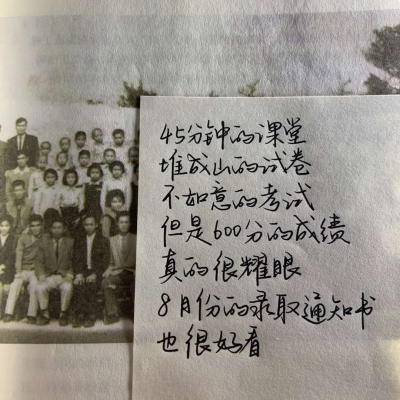 45分钟的课堂
堆成山的试卷
不如意的考试
但是600分的成绩
真的很耀眼
8月份的录取通知书
也很好看